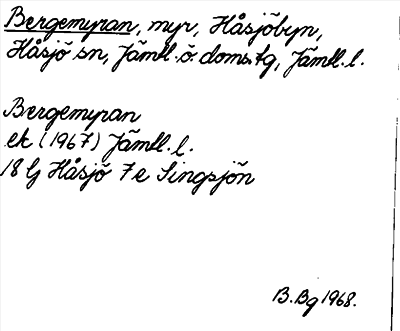 Bergemyran, myr, Håsjöbyn,
Håsjö sn, Jämtl. ö. doms.tg, Jämtl. l.
Bergemyran
ek (1967) Jämtl. l.
18 G Håsjö 7 e Singsjön
B. Bg 1968.